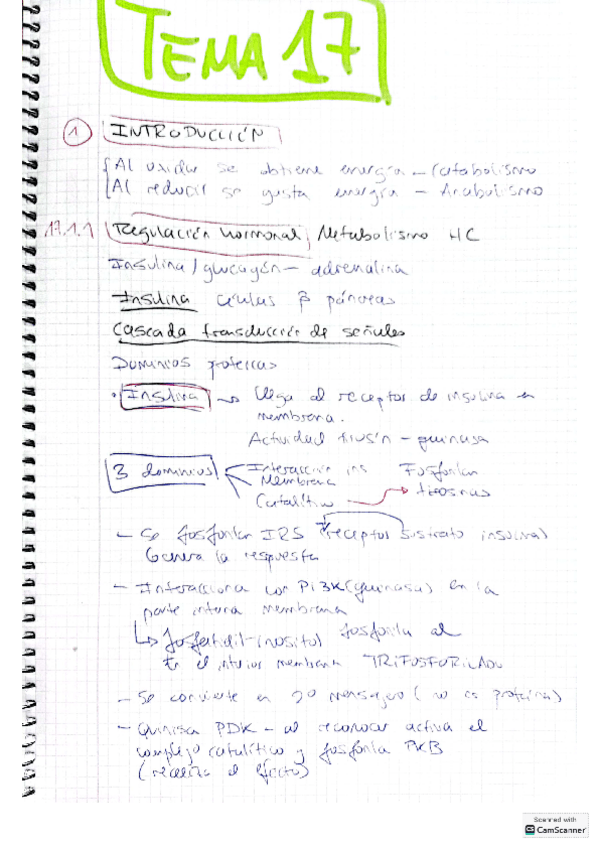 TEMA 17
1 INTRODUCCIÓN
Al oxidar se obtiene energía - Catabolismo
Al reducir se gasta energía - Anabolismo
17.1.1 Regulación hormonal, Metabolismo HC
Insulina / glucagón - adrenalina
Insulina células β páncreas
Cascada transducción de señales
Dominios proteicas
· Insulina → llega al receptor de insulina en
membrana.
Actividad tirosín - quinasa
3 dominios Interacción ins Fosforilan
Membrana tirosinas
Catalítico
- Se fosforilan IRS (receptor sustrato insulina)
Genera la respuesta
- Interacciona con Pi3K (quinasa) en la
parte interna membrana
↳ fosfatidil-inositol fosforila al
en el interior membrana TRIFOSFORILADO
- Se convierte en 2º mensajero (no es proteína)
- Quinasa PDK - al reconocer activa el
complejo catalítico y fosforila PKB
(realiza el efecto)
Scanned with
CamScanner